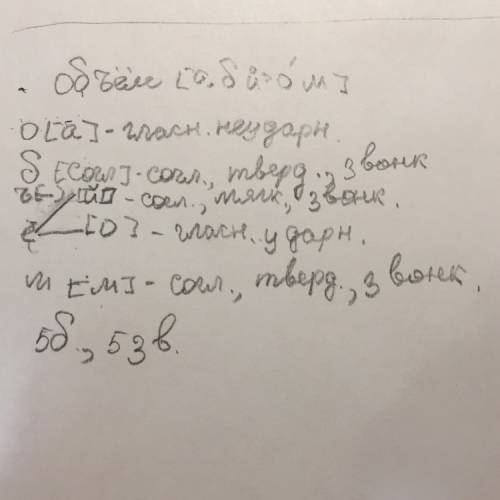 Объём [а б й' о́ м]
о [а] - гласн. неударн.
б [согл] - согл., тверд., звонк
ъ [-] [й'] - согл., мягк., звонк.
ё [о] - гласн. ударн.
м [м] - согл., тверд., звонк.
5б., 5зв.